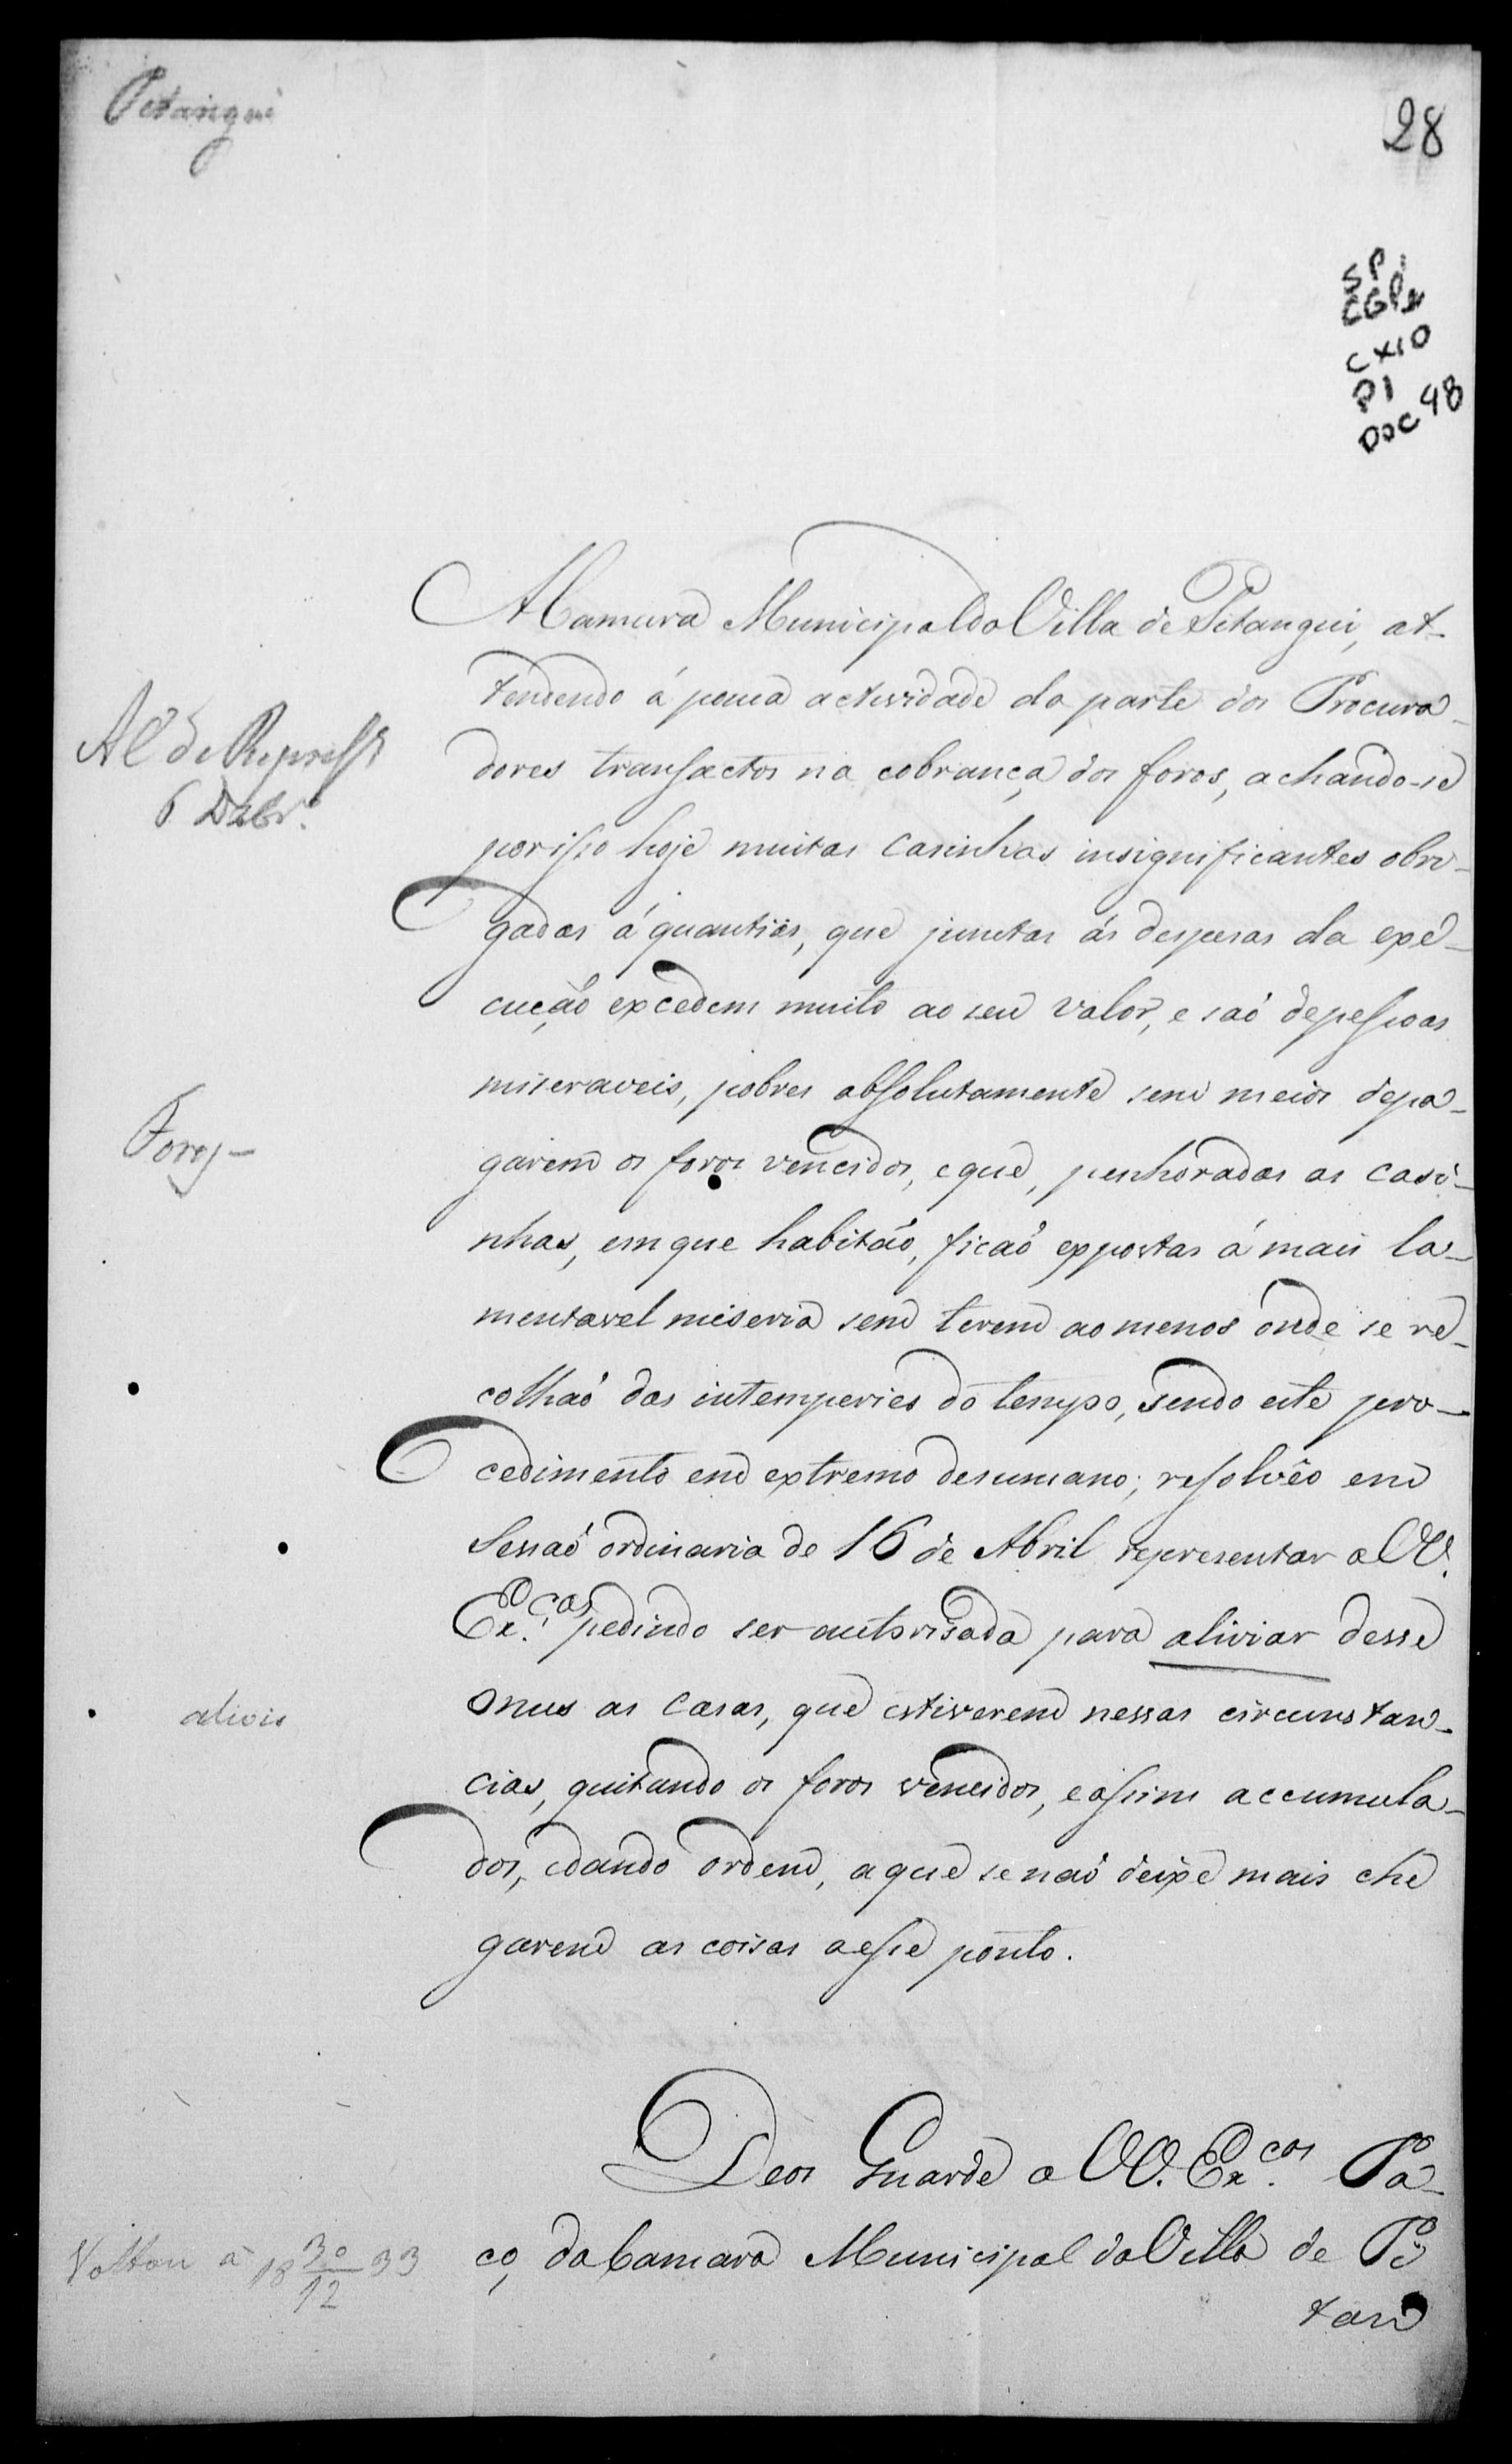 Pitangui
28
SP
CX10
P1
DOC 48
A Camara Municipal da Villa de Pitangui, at-
tendendo á pouca actividade da parte dos Procura-
dores transactos na cobrança dos foros, achando-se
porisso hoje muitas casinhas insignificantes obri-
gadas á quantias, que junctas ás despesas da exe-
cução excedem muito ao seu valor, e saó depessoas
miseraveis, pobres absolutamente sem meios depa-
garem os foros vencidos, eque, penhoradas as casi-
nhas, emque habitáo, ficaó expostas á mais la-
mentavel miseria sem terem ao menos onde se re-
colhaó das intemperies do tempo, sendo este pro-
cedimento em extremo desumano; resolvêo em
Sessaó ordinaria de 16 de Abril representar a VV.
Ex.ças pedindo ser autorisada para aliviar desse
onus as casas, que estiverem nessas circunstan-
cias, quitando os foros vencidos, eassim accumula-
dos, edando ordem, aque senaó deixe mais che
garem as coisas aesse ponto.
Deos Guarde a VV. Ex.cas Pa-
ço da Camara Municipal da Villa de Pi
tan
A C de Represst
6 Dzbr.º
Foros-
alivio
Voltou a 18 30/12 33